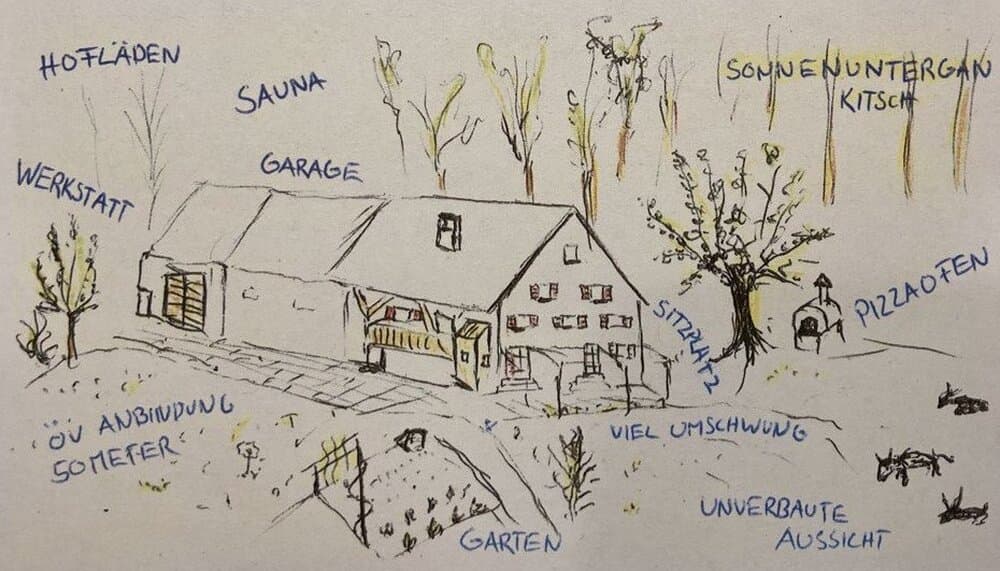 HOFLÄDEN
SAUNA
SONNENUNTERGAN
KITSCH
WERKSTATT
GARAGE
PIZZAOFEN
SITZPLATZ
ÖV ANBINDUNG
50METER
VIEL UMSCHWUNG
GARTEN
UNVERBAUTE
AUSSICHT